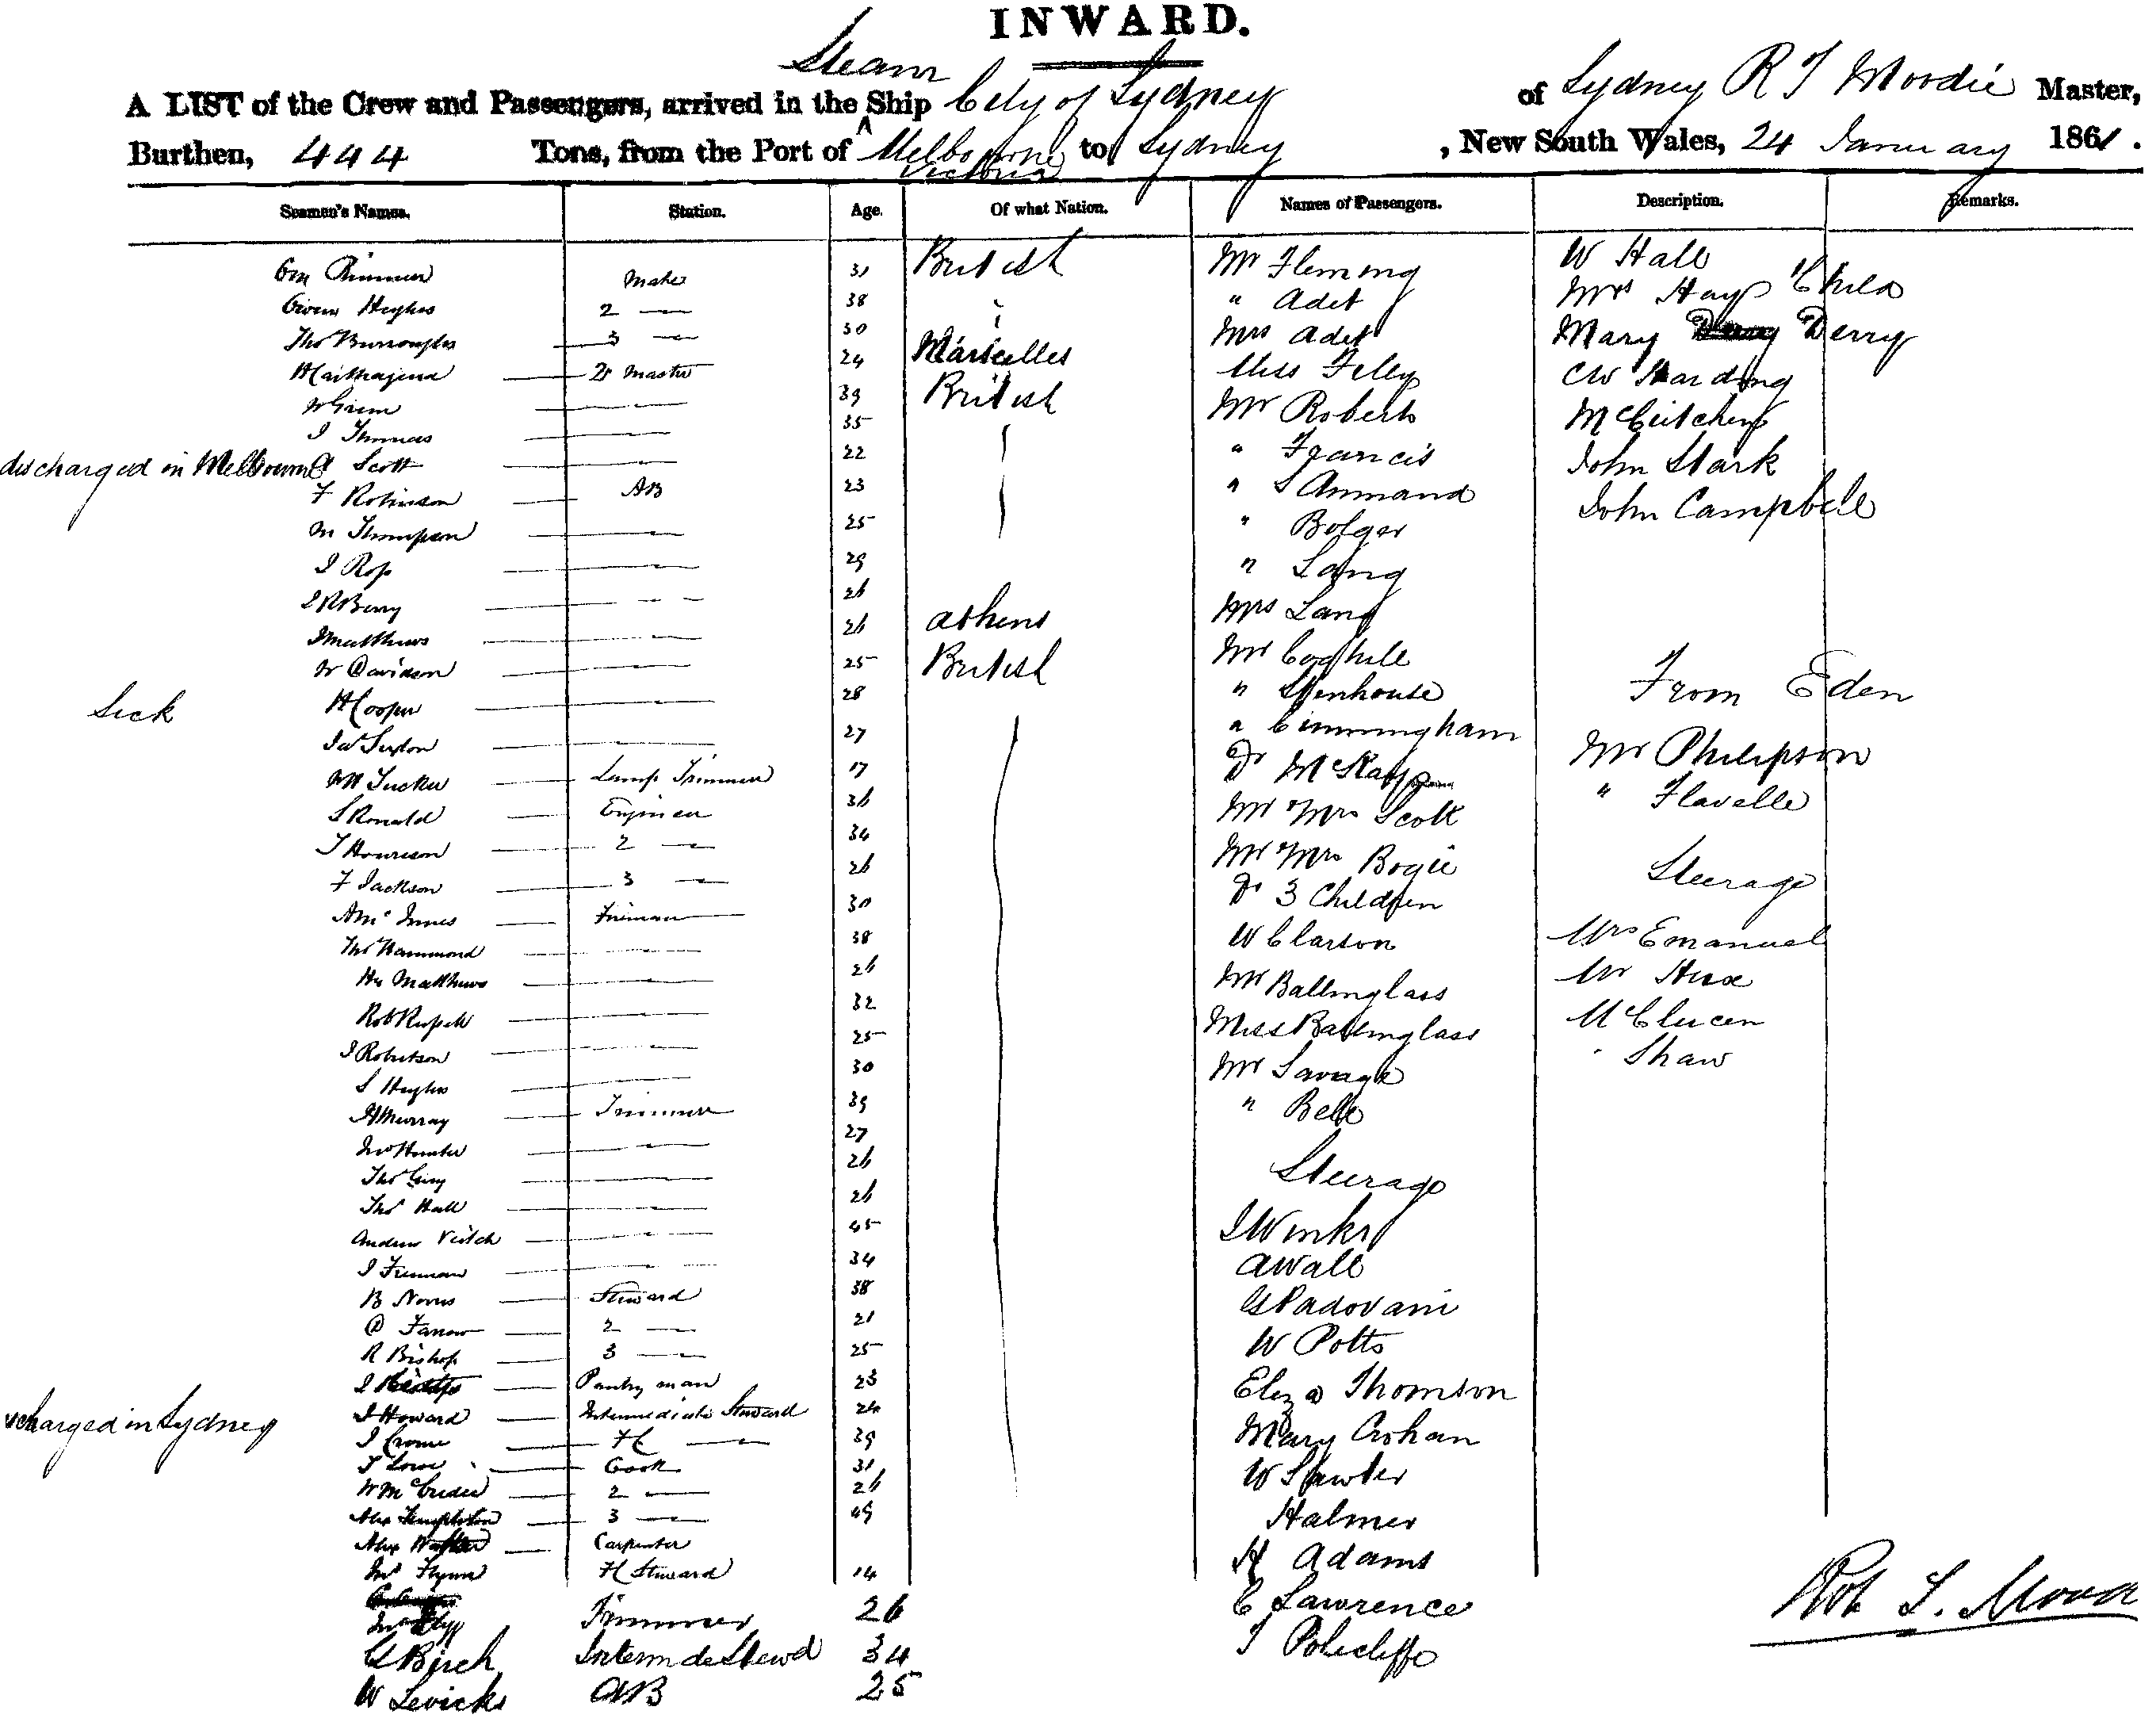 INWARD.
Steam
A LIST of the Crew and Passengers, arrived in the Ship City of Sydney of Sydney R T Moodie Master,
Burthen, 444 Tons, from the Port of Melbourne to Sydney , New South Wales, 24 January 1861.
Victoria
Seamen's Names. Station. Age. Of what Nation. Names of Passengers. Description. Remarks.
31 British Mr Fleming W Hall
Owen Hughes 2 — 38 " Adet Mrs Hay & Child
Thos Burroughs 3 — 30 Mrs Adet Mary Derry
Qr Master 24 Marseilles Miss Filey CW Harding
39 British Mr Roberts McCutcheng
J Thomas 35 " Francis John Stark
discharged in Melbourne Scott 22 " S Ammand John Campbell
F Robinson AB 23 " Bolger
M Thompson 25 " Lang
J Ross 29 Mrs Lang
J R Berry 26
J Matthews 26 Athens Mr Coghill
W Davidson 25 British " Stenhouse From Eden
Sick H Cooper 28 " Cunningham
Jas Sexton 27 Dr McKay Mr Philipson
Wm Tucker Lamp Trimmer 17 Mr & Mrs Scott " Flavelle
S Ronald Engineer 36
T Howieson 2 — 34 Mr & Mrs Bogie Steerage
F Jackson 3 — 26 Do 3 Children
A McInnes Fireman 30 W Clarson Mrs Emanuel
Thos Hammond 38
Hy Matthews 26 Mr Ballinglass Mr Hux
Robt Russell 32 Miss Ballinglass McClucen
J Robertson 25 Mr Savage " Shaw
S Hughes 30 " Bell
H Murray Trimmer 39
Jno Hunter 27 Steerage
Thos 26
Thos Hall 26 J Winks
Andrew Veitch 45 A Wall
J Freeman 34 G Padovani
B Norris Steward 38 W Potts
D Farrow 2 — 21 Eliza Thomson
R Bishop 3 — 25 Mary Crohan
J Pantryman 23 W Sawter
discharged in Sydney J Howard Intermediate Steward 24 Halmer
J Crome FC — 39 H Adams
T Lowe Cook 31 C Lawrence
Wm 2 — 26 T Policliffe
Alex Templeton 3 — 49
Alex Walker Carpenter
Jno Flynn FC Steward 14
Jno Trimmer 26
G Birch Interm de Stewd 34
W Levicks AB 25
Rob T. Mood